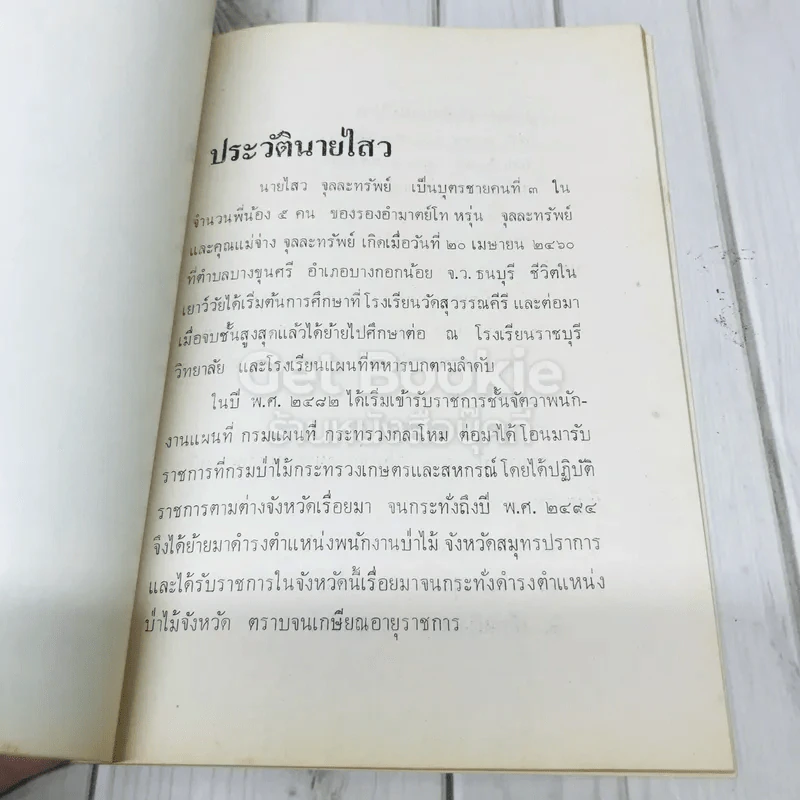 ประวัตินายไสว
นายไสว จุลละทรัพย์ เป็นบุตรชายคนที่ ๓ ใน
จำนวนพี่น้อง ๕ คน ของรองอำมาตย์โท หรุ่น จุลละทรัพย์
และคุณแม่จ่าง จุลละทรัพย์ เกิดเมื่อวันที่ ๒๐ เมษายน ๒๔๖๐
ที่ตำบลบางขุนศรี อำเภอบางกอกน้อย จ.ว. ธนบุรี ชีวิตใน
เยาว์วัยได้เริ่มต้นการศึกษาที่โรงเรียนวัดสุวรรณคีรี และต่อมา
เมื่อจบชั้นสูงสุดแล้วได้ย้ายไปศึกษาต่อ ณ โรงเรียนราชบุรี
วิทยาลัย และโรงเรียนแผนที่ทหารบกตามลำดับ
Get Bookie
ในปี พ.ศ. ๒๔๘๒ ได้เริ่มเข้ารับราชการชั้นจัตวาพนัก-
ร้านหนังสือกุ๊กกี้
งานแผนที่ กรมแผนที่ กระทรวงกลาโหม ต่อมาได้โอนมารับ
ราชการที่กรมป่าไม้กระทรวงเกษตรและสหกรณ์ โดยได้ปฏิบัติ
ราชการตามต่างจังหวัดเรื่อยมา จนกระทั่งถึงปี พ.ศ. ๒๔๙๔
จึงได้ย้ายมาดำรงตำแหน่งพนักงานป่าไม้ จังหวัดสมุทรปราการ
และได้รับราชการในจังหวัดนี้เรื่อยมาจนกระทั่งดำรงตำแหน่ง
ป่าไม้จังหวัด ตราบจนเกษียณอายุราชการ